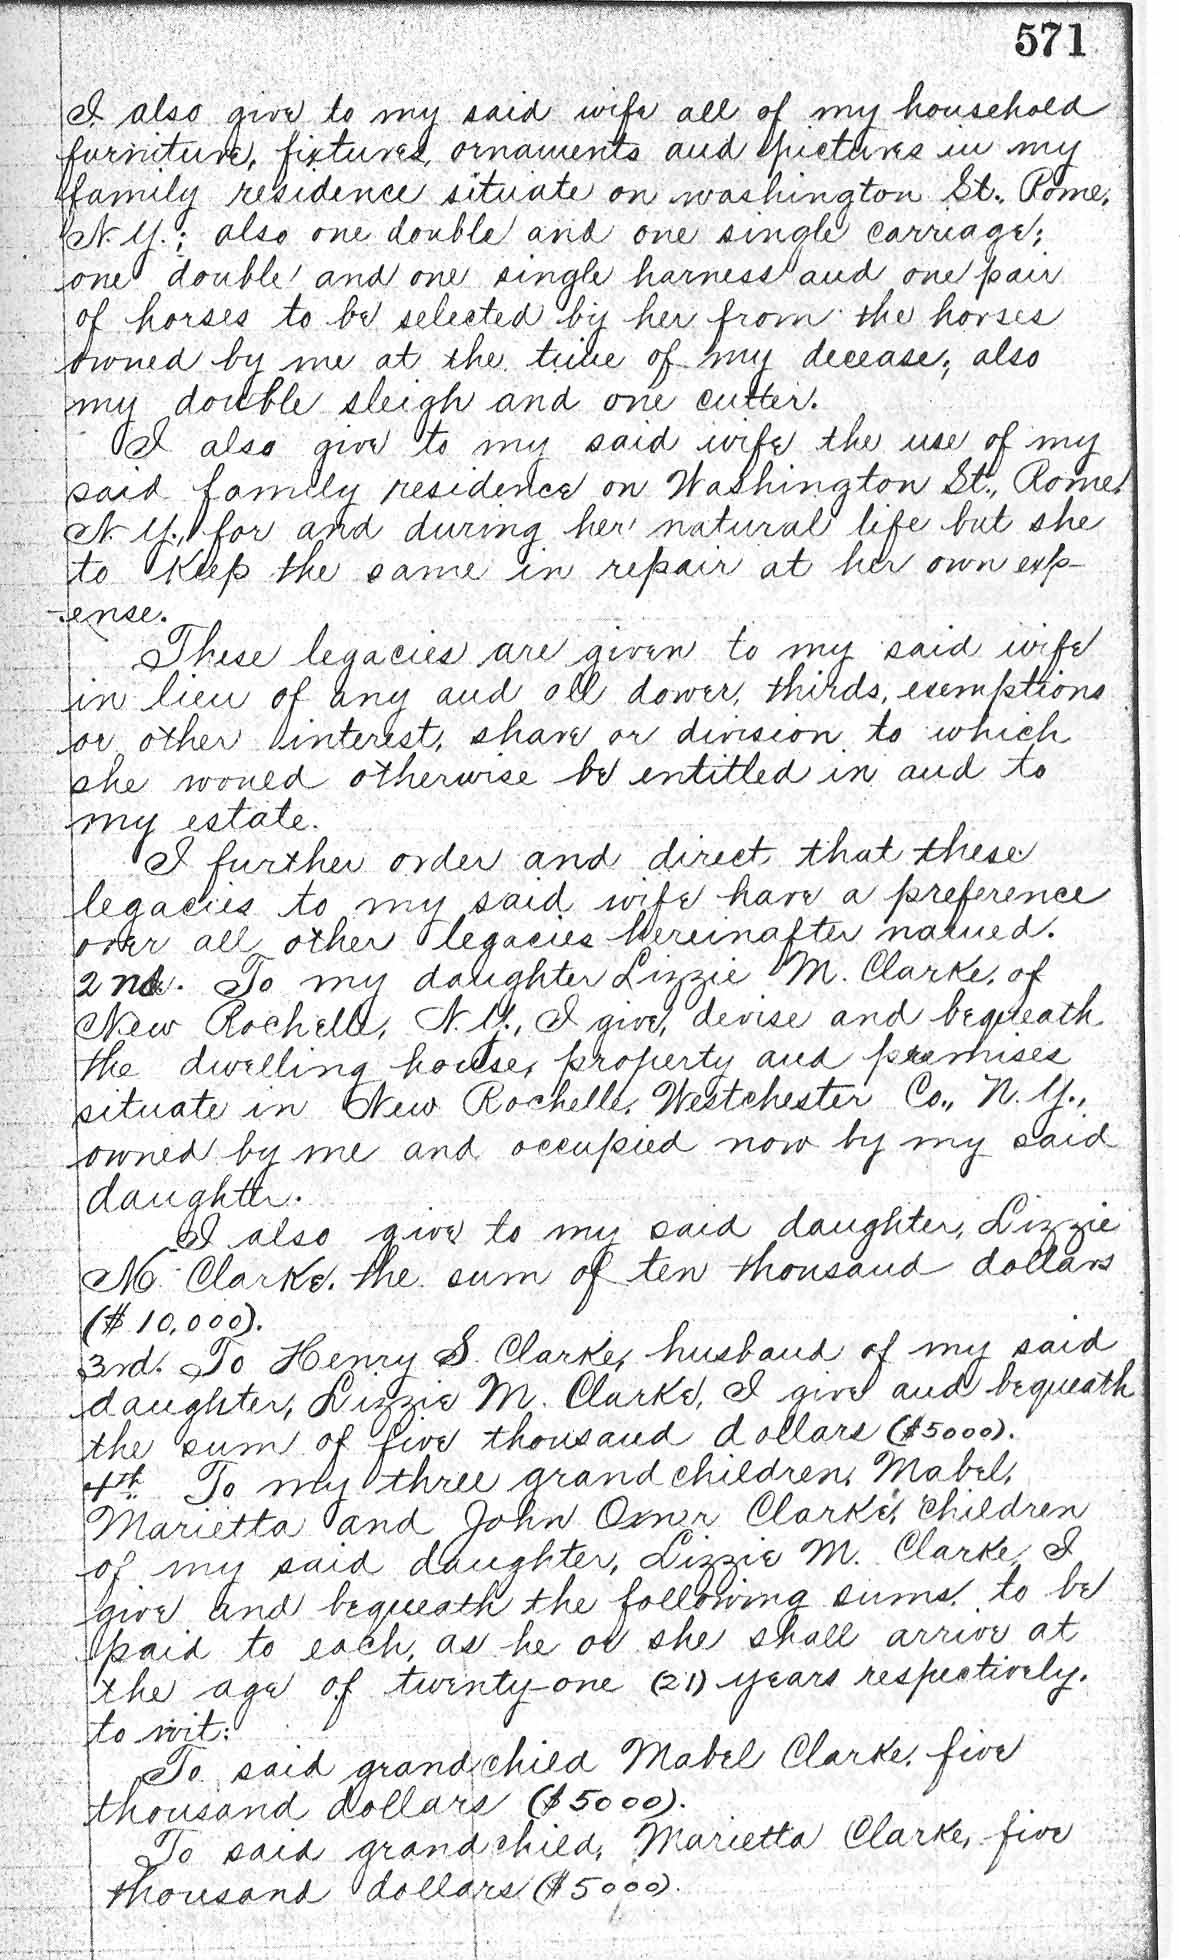 571
I also give to my said wife all of my household
furniture, fixtures, ornaments and pictures in my
family residence situate on washington St., Rome,
N.Y.; also one double and one single carriage;
one double and one single harness and one pair
of horses to be selected by her from the horses
owned by me at the time of my decease; also
my double sleigh and one cutter.
I also give to my said wife the use of my
said family residence on Washington St., Rome,
N.Y., for and during her natural life but she
to keep the same in repair at her own exp-
-ense.
These legacies are given to my said wife
in lieu of any and all dower, thirds, exemptions
or other interest, share or division to which
she would otherwise be entitled in and to
my estate.
I further order and direct that these
legacies to my said wife have a preference
over all other legacies hereinafter named.
2nd. To my daughter Lizzie M. Clarke, of
New Rochelle, N.Y., I give, devise and bequeath
the dwelling house, property and premises
situate in New Rochelle, Westchester Co., N.Y.,
owned by me and occupied now by my said
daughter.
I also give to my said daughter, Lizzie
M Clarke, the sum of ten thousand dollars
($10,000).
3rd. To Henry S. Clarke, husband of my said
daughter, Lizzie M. Clarke, I give and bequeath
the sum of five thousand dollars ($5000).
4th To my three grandchildren, Mabel,
Marietta and John Omer Clarke, children
of my said daughter, Lizzie M. Clarke, I
give and bequeath the following sums, to be
paid to each, as he or she shall arrive at
the age of twenty-one (21) years respectively.
to wit:
To said grandchild Mabel Clarke, five
thousand dollars ($5000).
To said grandchild, Marietta Clarke, five
thousand dollars ($5000).